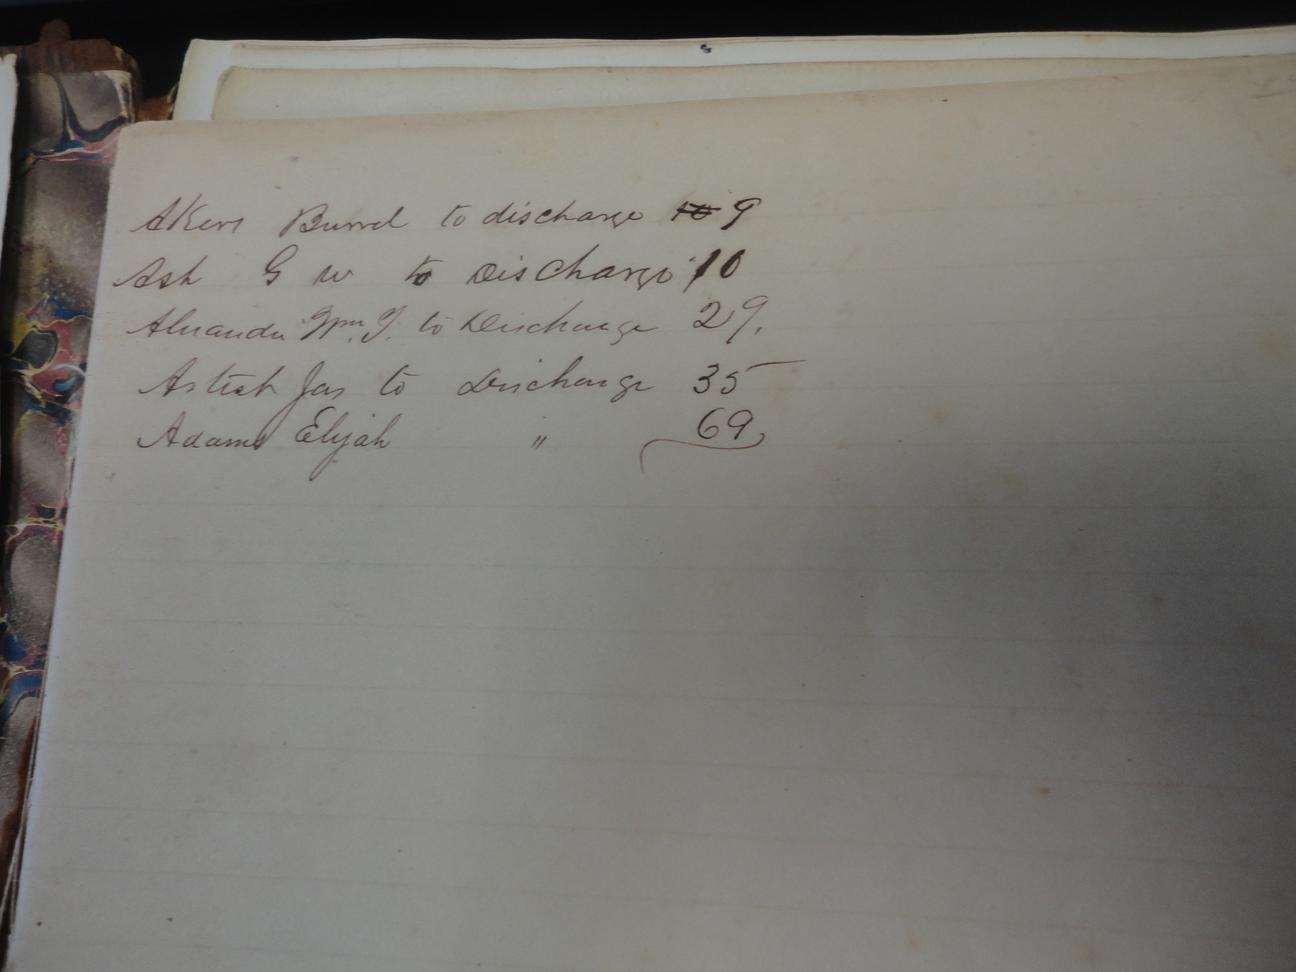 Akers Burrel to discharge 10 9
Ash G W to Discharge 10
Alexander Wm. T. to Discharge 29.
Jas to Discharge 35
Adams Elijah " 69